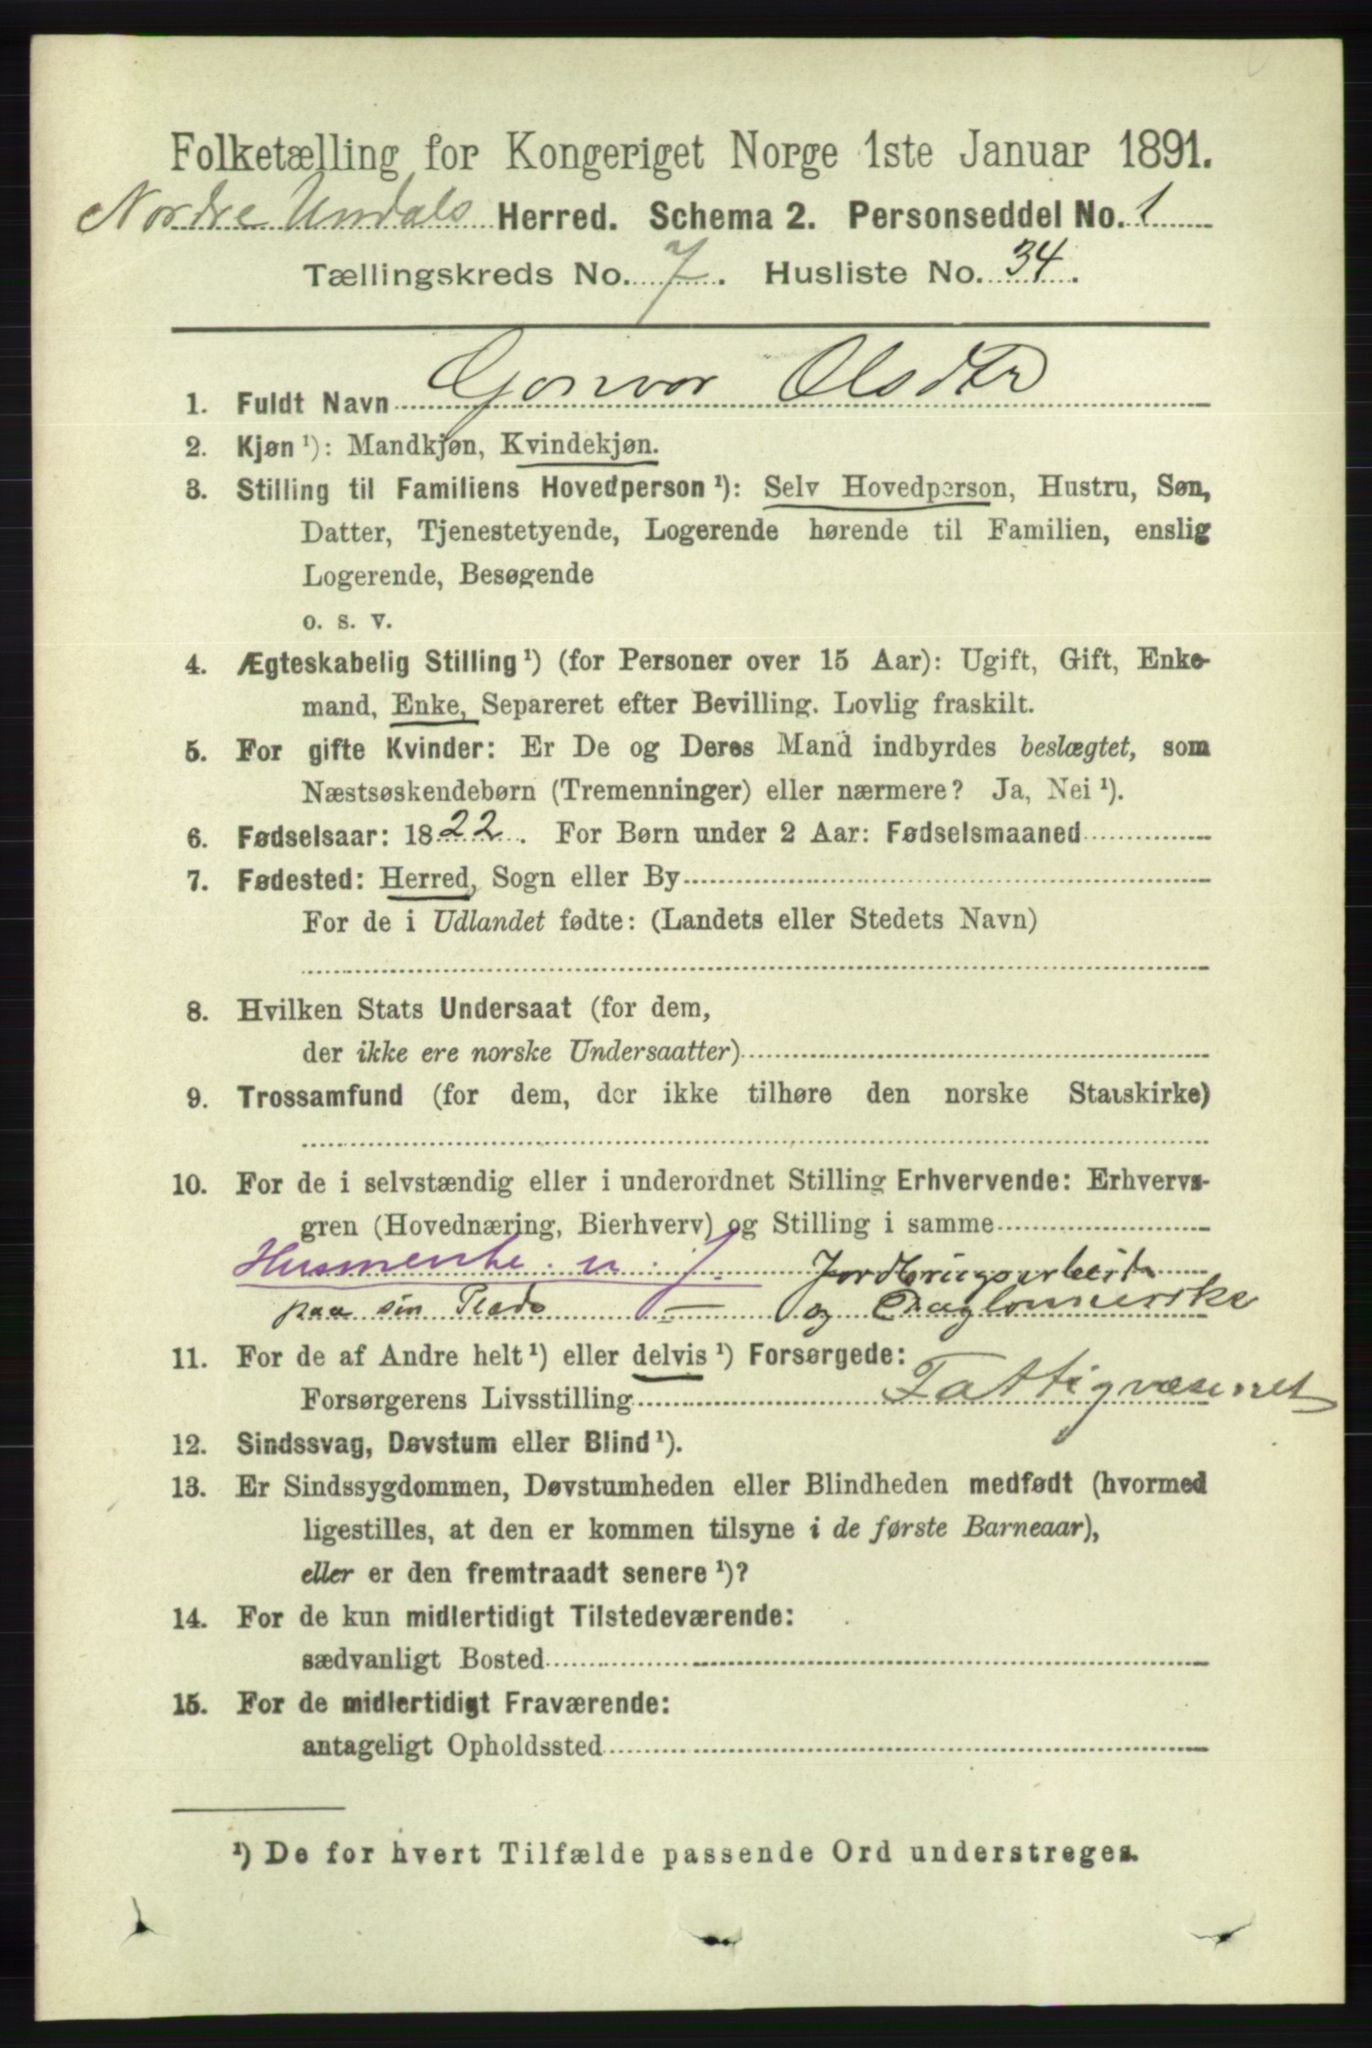 Folketælling for Kongeriget Norge 1ste Januar 1891.
Nordre Undals Herred. Schema 2. Personseddel No. 1
Tællingskreds No. 7. Husliste No. 34.
1. Fuldt Navn Gonvor Olsdtr
2. Kjøn ¹): Mandkjøn, Kvindekjøn.
3. Stilling til Familiens Hovedperson ¹): Selv Hovedperson, Hustru, Søn,
Datter, Tjenestetyende, Logerende hørende til Familien, enslig
Logerende, Besøgende
o. s. v.
4. Ægteskabelig Stilling ¹) (for Personer over 15 Aar): Ugift, Gift, Enke-
mand, Enke, Separeret efter Bevilling. Lovlig fraskilt.
5. For gifte Kvinder: Er De og Deres Mand indbyrdes beslægtet, som
Næstsøskendebørn (Tremenninger) eller nærmere? Ja, Nei ¹).
6. Fødselsaar: 1822. For Børn under 2 Aar: Fødselsmaaned
7. Fødested: Herred, Sogn eller By
For de i Udlandet fødte: (Landets eller Stedets Navn)
8. Hvilken Stats Undersaat (for dem,
der ikke ere norske Undersaatter)
9. Trossamfund (for dem, der ikke tilhøre den norske Statskirke)
10. For de i selvstændig eller i underordnet Stilling Erhvervende: Erhvervs-
gren (Hovednæring, Bierhverv) og Stilling i samme
Husmenke u. j. Jordbrugsarbeide
paa sin Plads — og Daglønnerske
11. For de af Andre helt ¹) eller delvis ¹) Forsørgede:
Forsørgerens Livsstilling Fattigvæsenet
12. Sindssvag, Døvstum eller Blind ¹).
13. Er Sindssygdommen, Døvstumheden eller Blindheden medfødt (hvormed
ligestilles, at den er kommen tilsyne i de første Barneaar),
eller er den fremtraadt senere ¹)?
14. For de kun midlertidigt Tilstedeværende:
sædvanligt Bosted
15. For de midlertidigt Fraværende:
antageligt Opholdssted
¹) De for hvert Tilfælde passende Ord understreges.